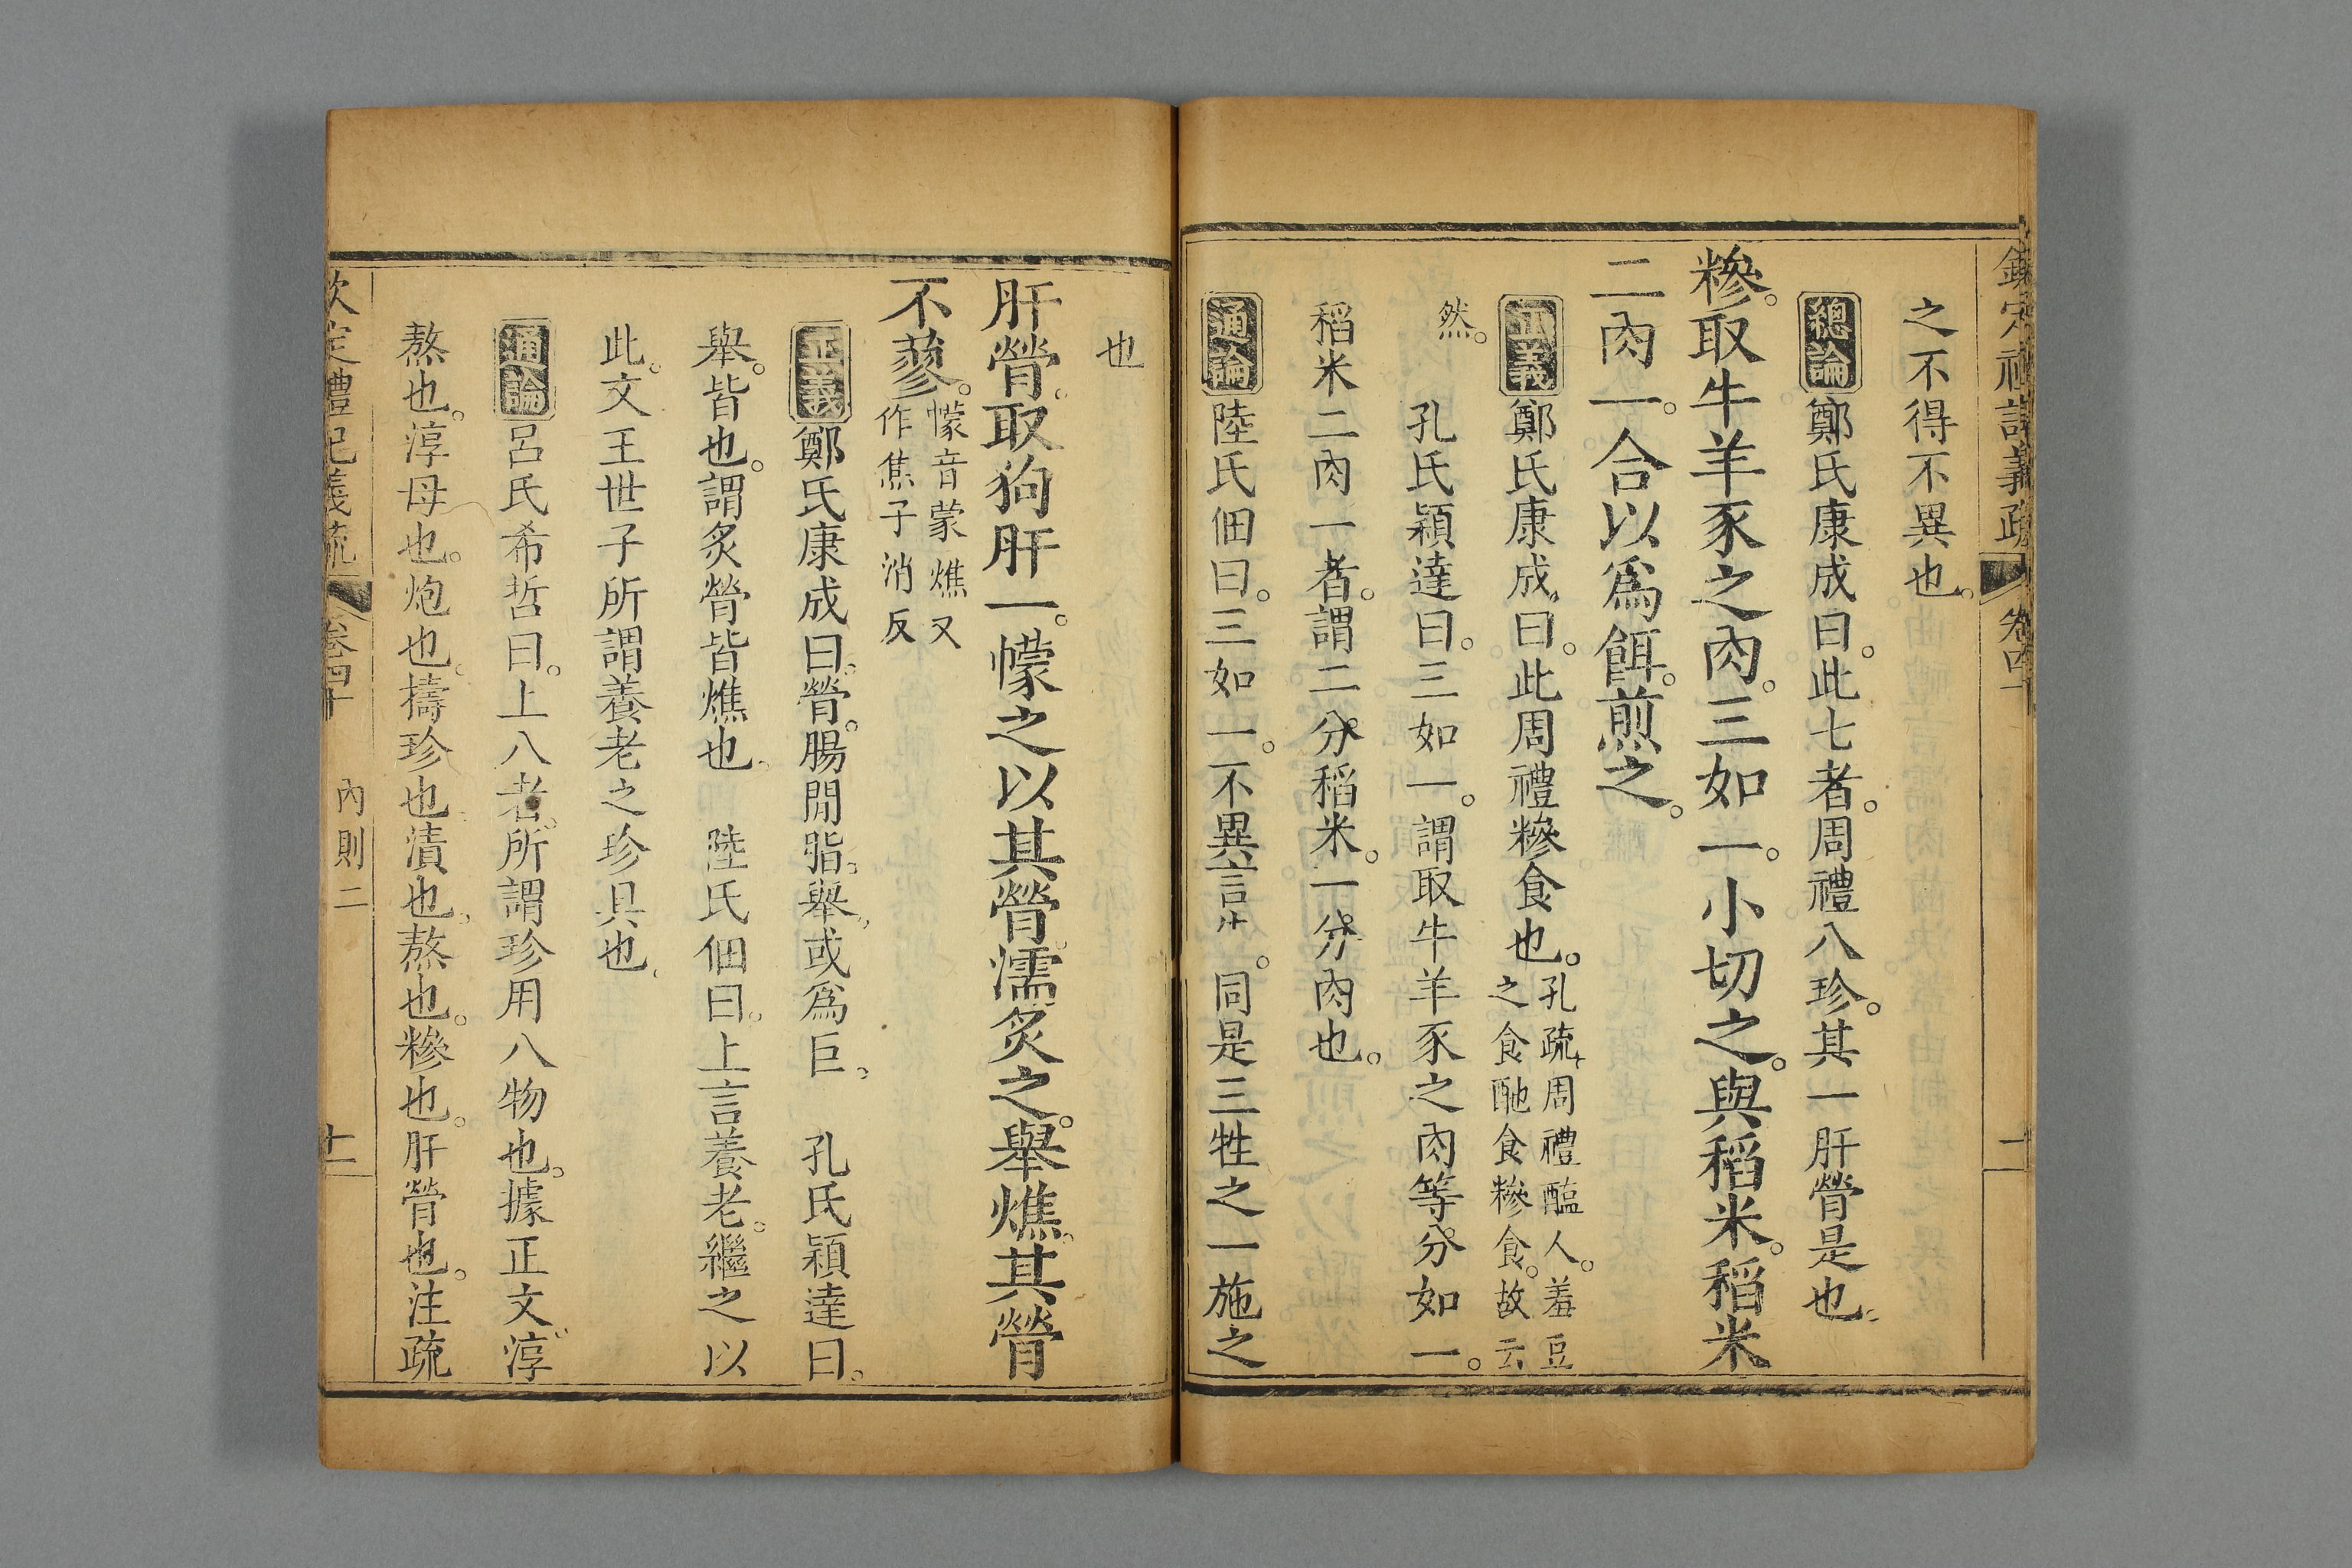 欽定禮記義疏 卷四十
之不得不異也。
總論 鄭氏康成曰。此七者。周禮八珍。其一肝膋是也。
糝。取牛羊豕之肉。三如一。小切之。與稻米。稻米
二肉一。合以爲餌。煎之。
正義 鄭氏康成曰。此周禮糝食也。孔疏周禮醢人。羞豆之食酏食糝食。故云
然。
孔氏穎達曰。三如一。謂取牛羊豕之肉等分如一。
稻米二肉一者。謂二分稻米。一分肉也。
通論 陸氏佃曰。三如一。不異言。同是三牲之一施之
也
肝膋。取狗肝一。幪之以其膋。濡炙之。舉燋。其膋
不蓼。幪音蒙燋又作焦子消反
正義 鄭氏康成曰。膋。腸間脂。舉。或爲巨。 孔氏穎達曰。
舉。皆也。謂炙膋皆燋也。 陸氏佃曰。上言養老。繼之以
此。文王世子所謂養老之珍具也。
通論 呂氏希哲曰。上八者。所謂珍用八物也。據正文。淳
熬也。淳母也。炮也。擣珍也。漬也。熬也。糝也。肝膋也。注疏
欽定禮記義疏 卷四十 內則二 十一